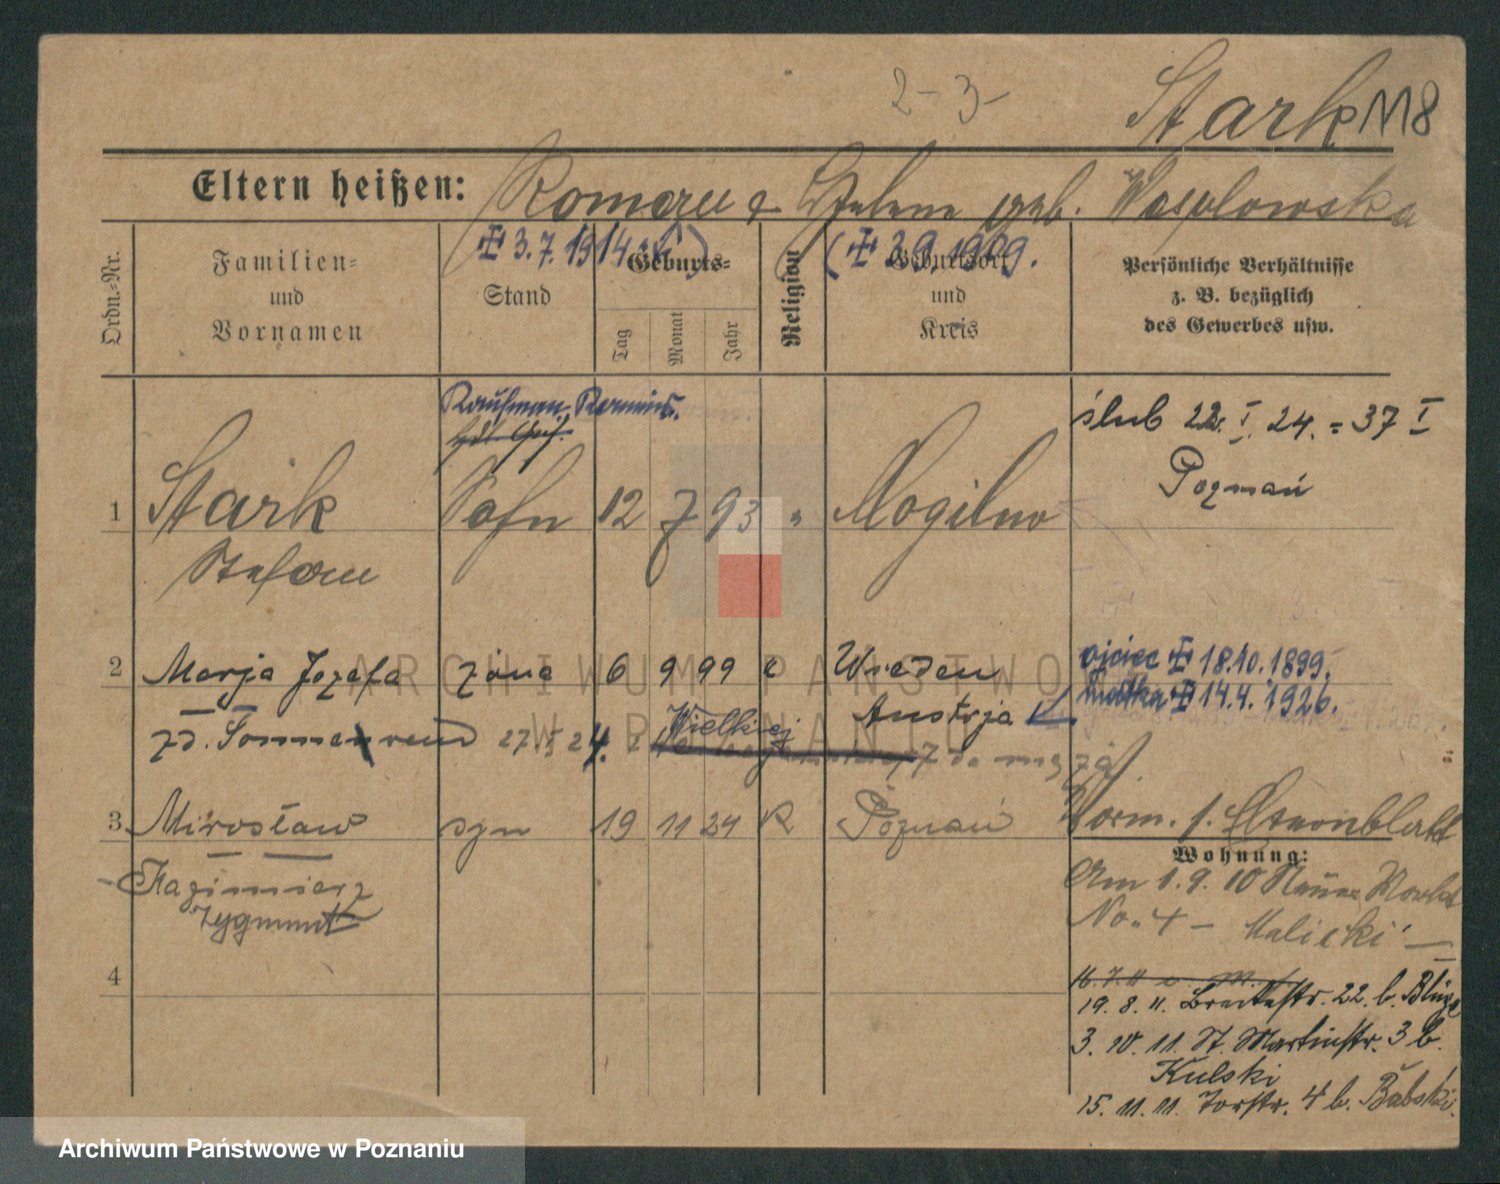 2-3-
Stark 118
Eltern heißen: Roman & Helene geb. Wasylowska
Ordn.-Nr.
Familien-
und
Vornamen
Stand
3.7.1914
Geburts-
Tag
Monat
Jahr
Religion
Geburtsort
und
Kreis
Persönliche Verhältnisse
z. B. bezüglich
des Gewerbes usw.
Kaufman.
ślub 22. I. 24. = 37 I
Poznań
1 Stark Sohn 12 7 93 " Mogilno
Stefan
2 Marja Józefa żona 6 9 99 k Wreden
Austrja
ojciec 18.10.1899.
matka 14.4.1926.
zd. 27. 24. Wielkiej 7 do męża
3 Mirosław syn 19 11 24 K Poznań
Kazimierz
Zygmunt
Vorm. f.
Wohnung:
Am 1.9.10 Neuer Markt
No. 4 - Malicki -
4
19. 8. 11. Breitestr. 22. b.
3. 10. 11. St. Martinstr. 3 b.
Kulski
15. 11. 11. Torstr. 4 b. Babski.
ARCHIWUM PAŃSTWOWE
W POZNANIU
Archiwum Państwowe w Poznaniu